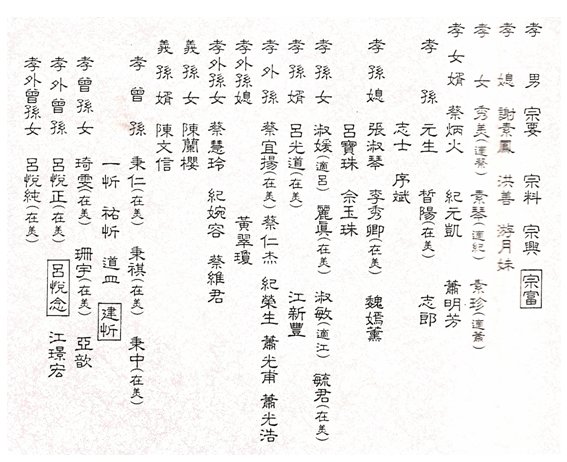 孝男 宗要 宗料 宗興 宗富
孝媳 謝素鳳 洪善 游月妹
孝女 秀美(適蔡) 素琴(適紀) 素珍(適蕭)
孝女婿 蔡炳火 紀元凱 蕭明芳
孝孫 元生 晳陽(在美) 志郎
志士 序斌
孝孫媳 張淑琴 李秀卿(在美) 魏嫣薰
呂寶珠 余玉珠
孝孫女 淑媛(適呂) 麗真(在美) 淑敏(適江) 毓君(在美)
孝孫婿 呂光道(在美) 江新豐
孝外孫 蔡宜揚(在美) 蔡仁杰 紀榮生 蕭光甫 蕭光浩
孝外孫媳 黃翠瓊
孝外孫女 蔡慧玲 紀婉容 蔡維君
義孫女 陳蘭櫻
義孫婿 陳文信
孝曾孫 秉仁(在美) 秉祺(在美) 秉中(在美)
一忻 祐忻 道皿 建忻
孝曾孫女 琦雯(在美) 珊宇(在美) 亞歆
孝外曾孫 呂悅正(在美) 呂悅念 江璟宏
孝外曾孫女 呂悅純(在美)